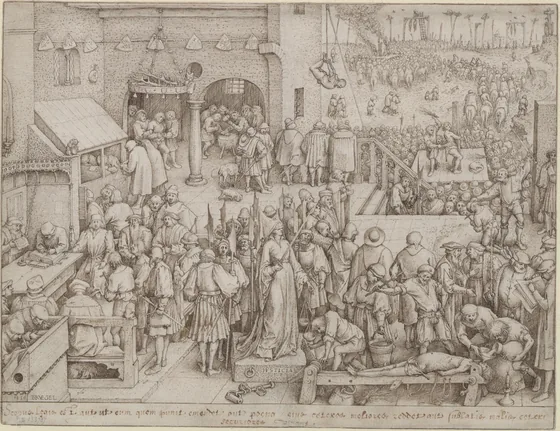 IVSTICIA
Scopus legis est, aut ut eum quem punit emendet, aut poena eius ceteros meliores reddet aut sublatis malis ceteri
securiores